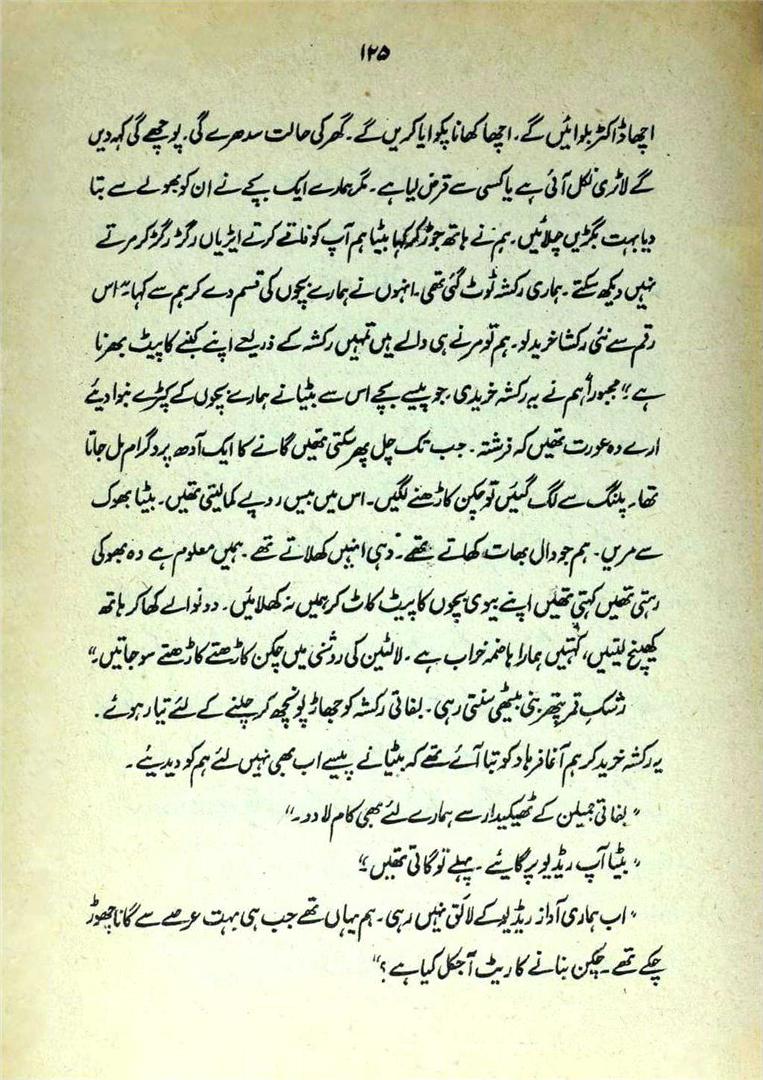 ۱۲۵
اچھا ڈاکٹر بلوائیں گے۔ اچھا کھانا پکوایا کریں گے۔ گھر کی حالت سدھرے گی۔ پوچھے گی کہہ دیں
گے لاٹری نکل آئی ہے یا کسی سے قرض لیا ہے۔ مگر ہمارے ایک بچے نے ان کو بھولے سے بتا
دیا بہت بگڑیں چلائیں۔ ہم نے ہاتھ جوڑ کر کہا بٹیا ہم آپ کو فاقے کرتے ایڑیاں رگڑ رگڑ کر مرتے
نہیں دیکھ سکتے۔ ہماری رکشہ ٹوٹ گئی تھی۔ انہوں نے ہمارے بچوں کی قسم دے کر ہم سے کہا۔ "اس
رقم سے نئی رکشا خرید لو۔ ہم تو مرنے ہی والے ہیں تمہیں رکشہ کے ذریعے اپنے کنبے کا پیٹ بھرنا
ہے"۔ مجبوراً ہم نے یہ رکشہ خریدی۔ جو پیسے بچے اس سے بٹیا نے ہمارے بچوں کے کپڑے بنوا دیئے
ارے وہ عورت تھیں کہ فرشتہ۔ جب تک چل پھر سکتی تھیں گانے کا ایک آدھ پروگرام مل جاتا
تھا۔ پلنگ سے لگ گئیں تو چکن کاڑھنے لگیں۔ اس میں بیس روپے کما لیتی تھیں۔ بٹیا بھوک
سے مریں۔ ہم جو دال بھات کھاتے تھے۔ وہی انہیں کھلاتے تھے۔ ہمیں معلوم ہے وہ بھوکی
رہتی تھیں کہتی تھیں اپنے بیوی بچوں کا پیٹ کاٹ کر ہمیں نہ کھلائیں۔ دو نوالے کھا کر ہاتھ
کھینچ لیتیں، کہتیں ہمارا ہاضمہ خراب ہے۔ لالٹین کی روشنی میں چکن کاڑھتے کاڑھتے سو جاتیں۔"
رشک قمر پتھر بنی بیٹھی سنتی رہی۔ بفاتی رکشہ کو جھاڑ پونچھ کر چلنے کے لئے تیار ہوئے۔
یہ رکشہ خرید کر ہم آغا فرہاد کو بتا آئے تھے کہ بٹیا نے پیسے اب بھی نہیں لئے ہم کو دیدیئے۔
"بفاتی جمیلن کے ٹھیکیدار سے ہمارے لئے بھی کام لا دو۔"
"بٹیا آپ ریڈیو پر گایئے۔ پہلے تو گاتی تھیں"۔
"اب ہماری آواز ریڈیو کے لائق نہیں رہی۔ ہم یہاں تھے جب ہی بہت عرصے سے گانا چھوڑ
چکے تھے۔ چکن بنانے کا ریٹ آجکل کیا ہے؟"